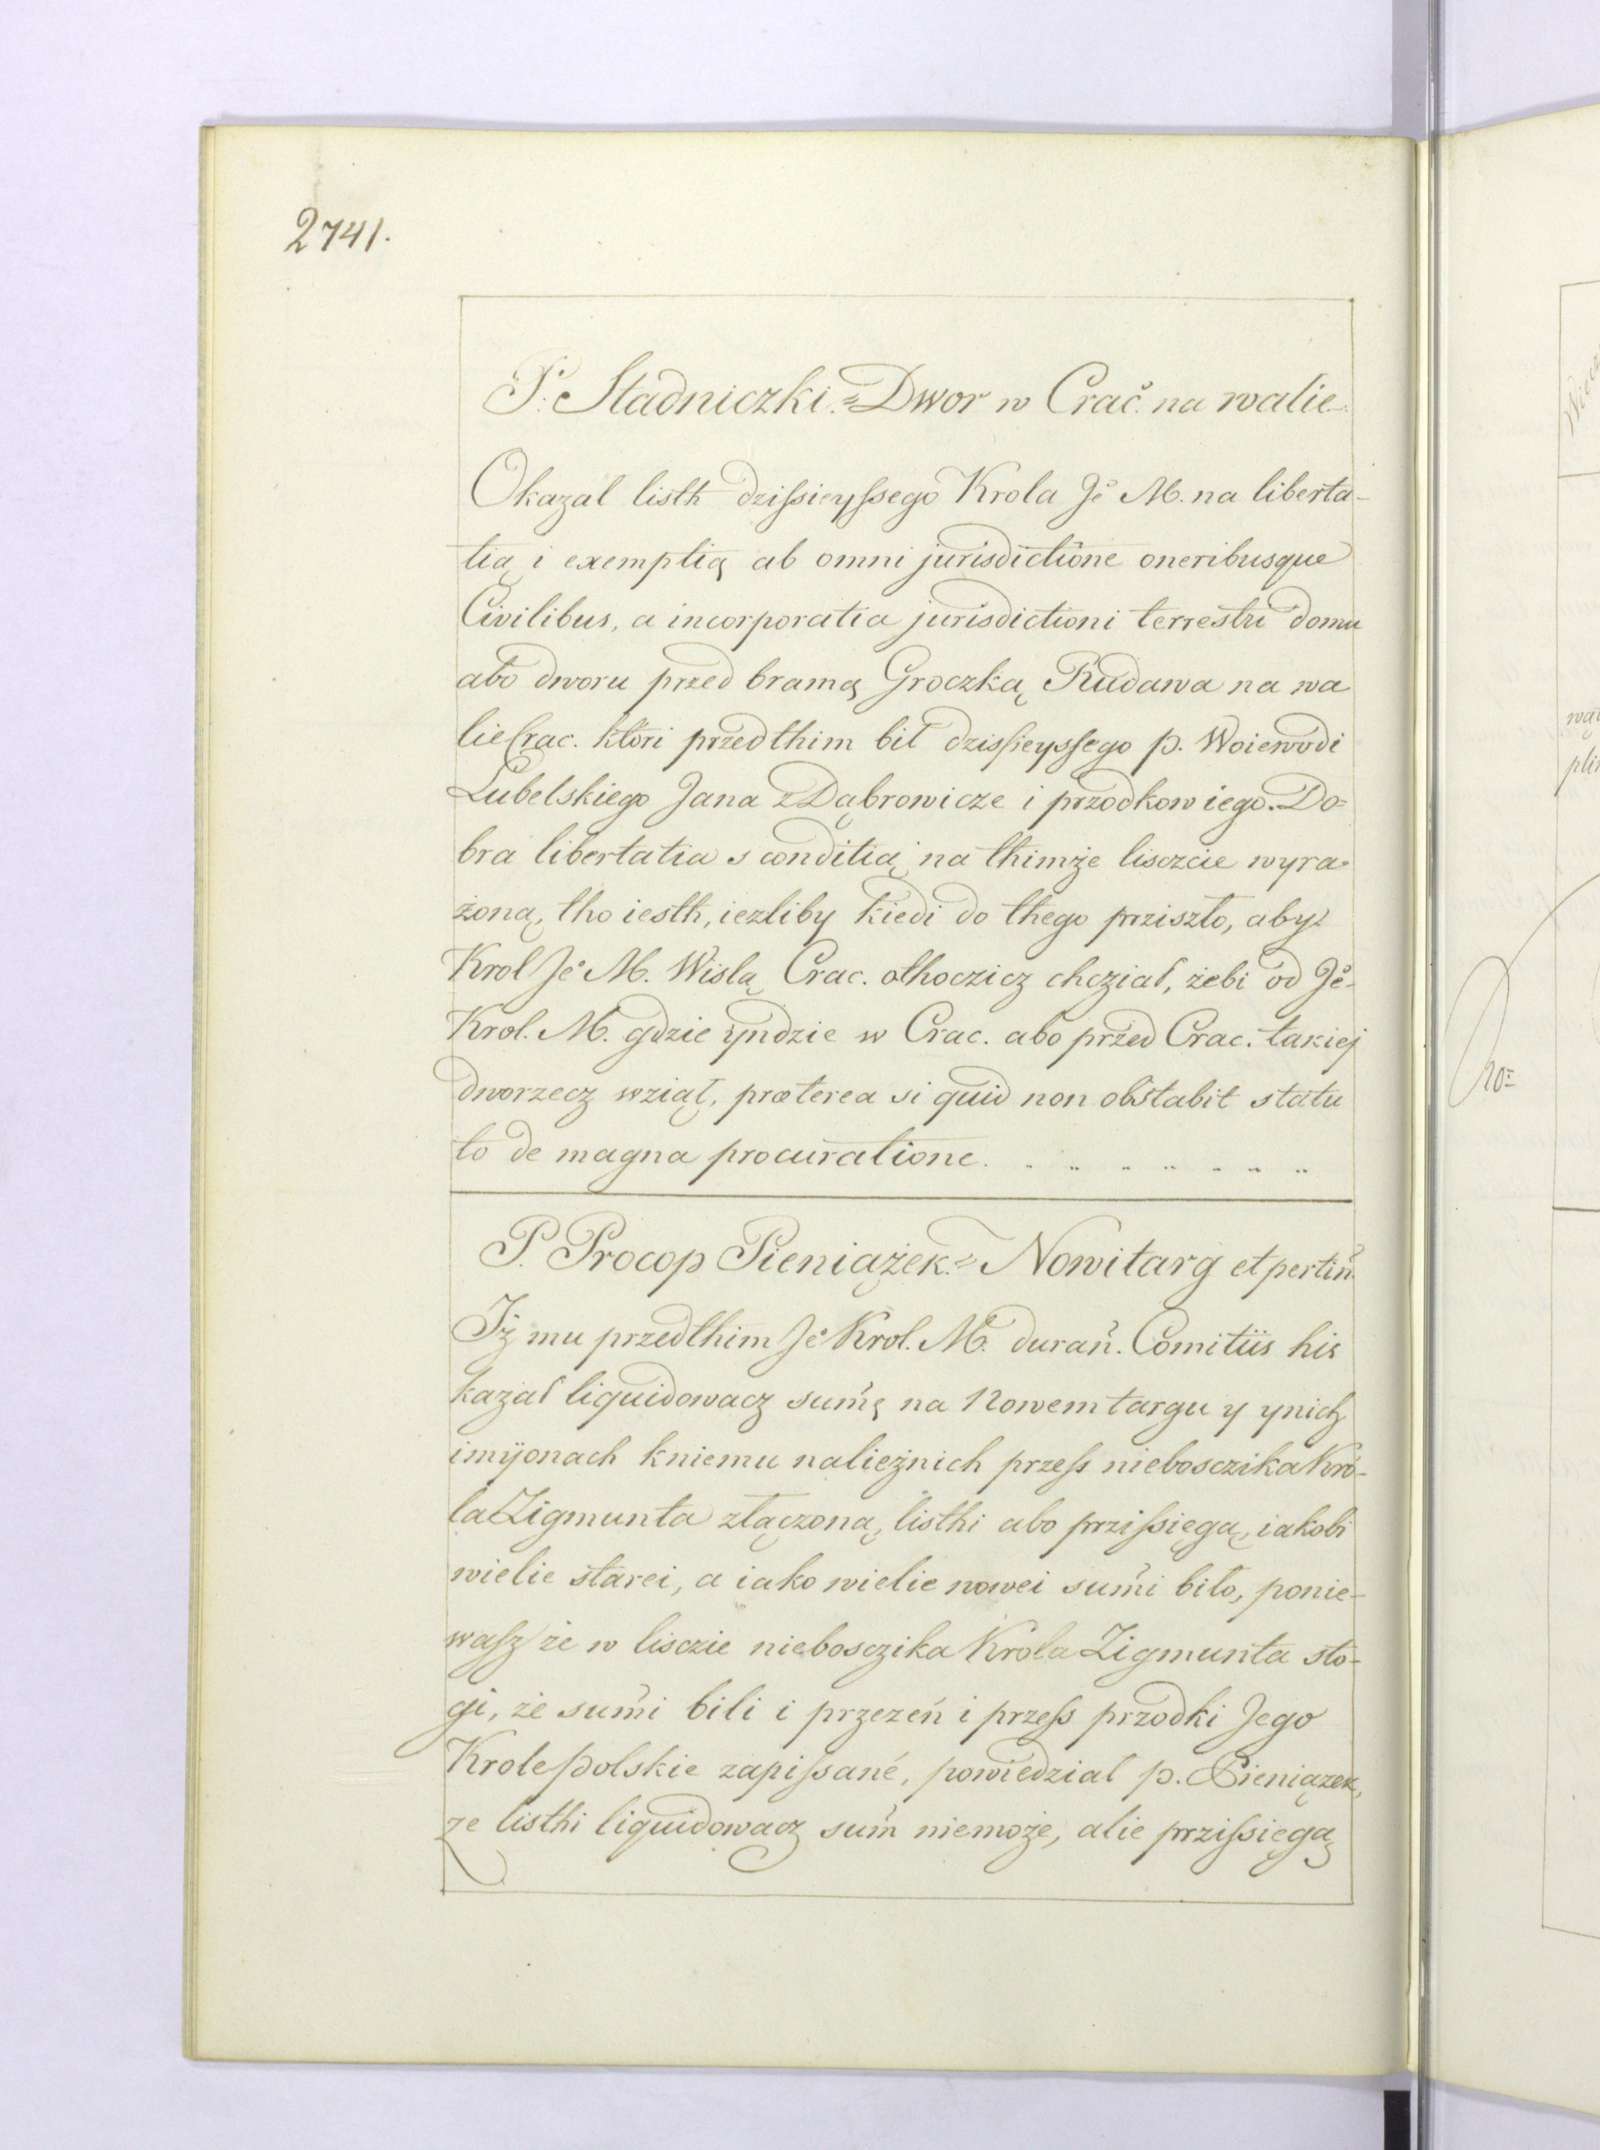 2741.
P. Stadniczki.= Dwor w Crac̃. na walie
Okazal listh dzißieyßego Krola Je͠ M. na liberta-
tią i exemptią ab omni jurisdictione oneribusque
Civilibus, a incorporatia jurisdictioni terrestri domu
abo dworu przed bramą Groczką Rudawa na wa
lie Crac. ktori przedthim bil dzisßeyßego p. Woiewodi
Lubelskiego Jana z Dąbrowicze i przodkow iego. Do=
bra libertatia s conditią na thimże lisczcie wyra=
żoną, tho iesth, iezliby kiedi do thego prziszło, aby
Krol Je͠ M. Wislą Crac. othoczicz chcział, żebi od Je͠-
Krol. M. gdzie yndzie w Crac. abo przed Crac. takiej
dworzecz wziął, præterea si quid non obstabit statu
to de magna procuratione.
P. Procop Pieniążek.= Nowitarg et pertiñ.
Iż mu przedthim Je͠ Krol. M. durañ. Comitiis his
kazał liquidowacz sum̃ę na Nowemtargu y ynich
imÿonach kniemu nalieżnich przeß nieboszczika Kro-
la Zigmunta złączoną, listhi abo przißięgą, iakobi
wielie starei, a iako wielie nowei sum̃i biło, ponie-
waß że w lisczie nieboszczika Krola Zigmunta sto-
gi, że sum̃i bili i przezeń i przeß przodki Jego
Krole polskie zapißané, powiedzial p. Pieniązek,
ze listhi liquidowacz sum̃ niemoże, alie przißięgą